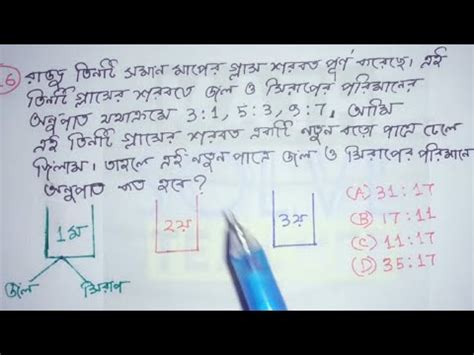 রাজু তিনটি সমান মাপের গ্লাস শরবত পূর্ণ করেছে। এই
তিনটি গ্লাসের শরবতে জল ও সিরাপের পরিমানের
অনুপাত যথাক্রমে 3:1, 5:3, 9:7, আমি
এই তিনটি গ্লাসের শরবত একটি নতুন বড়ো পাত্রে ঢেলে
দিলাম। তাহলে এই নতুন পাত্রে জল ও সিরাপের পরিমানে
অনুপাত কত হবে?
(A) 31:17
(B) 17:11
(C) 11:17
(D) 35:17
1ম
2য়
3য়
জল
সিরাপ